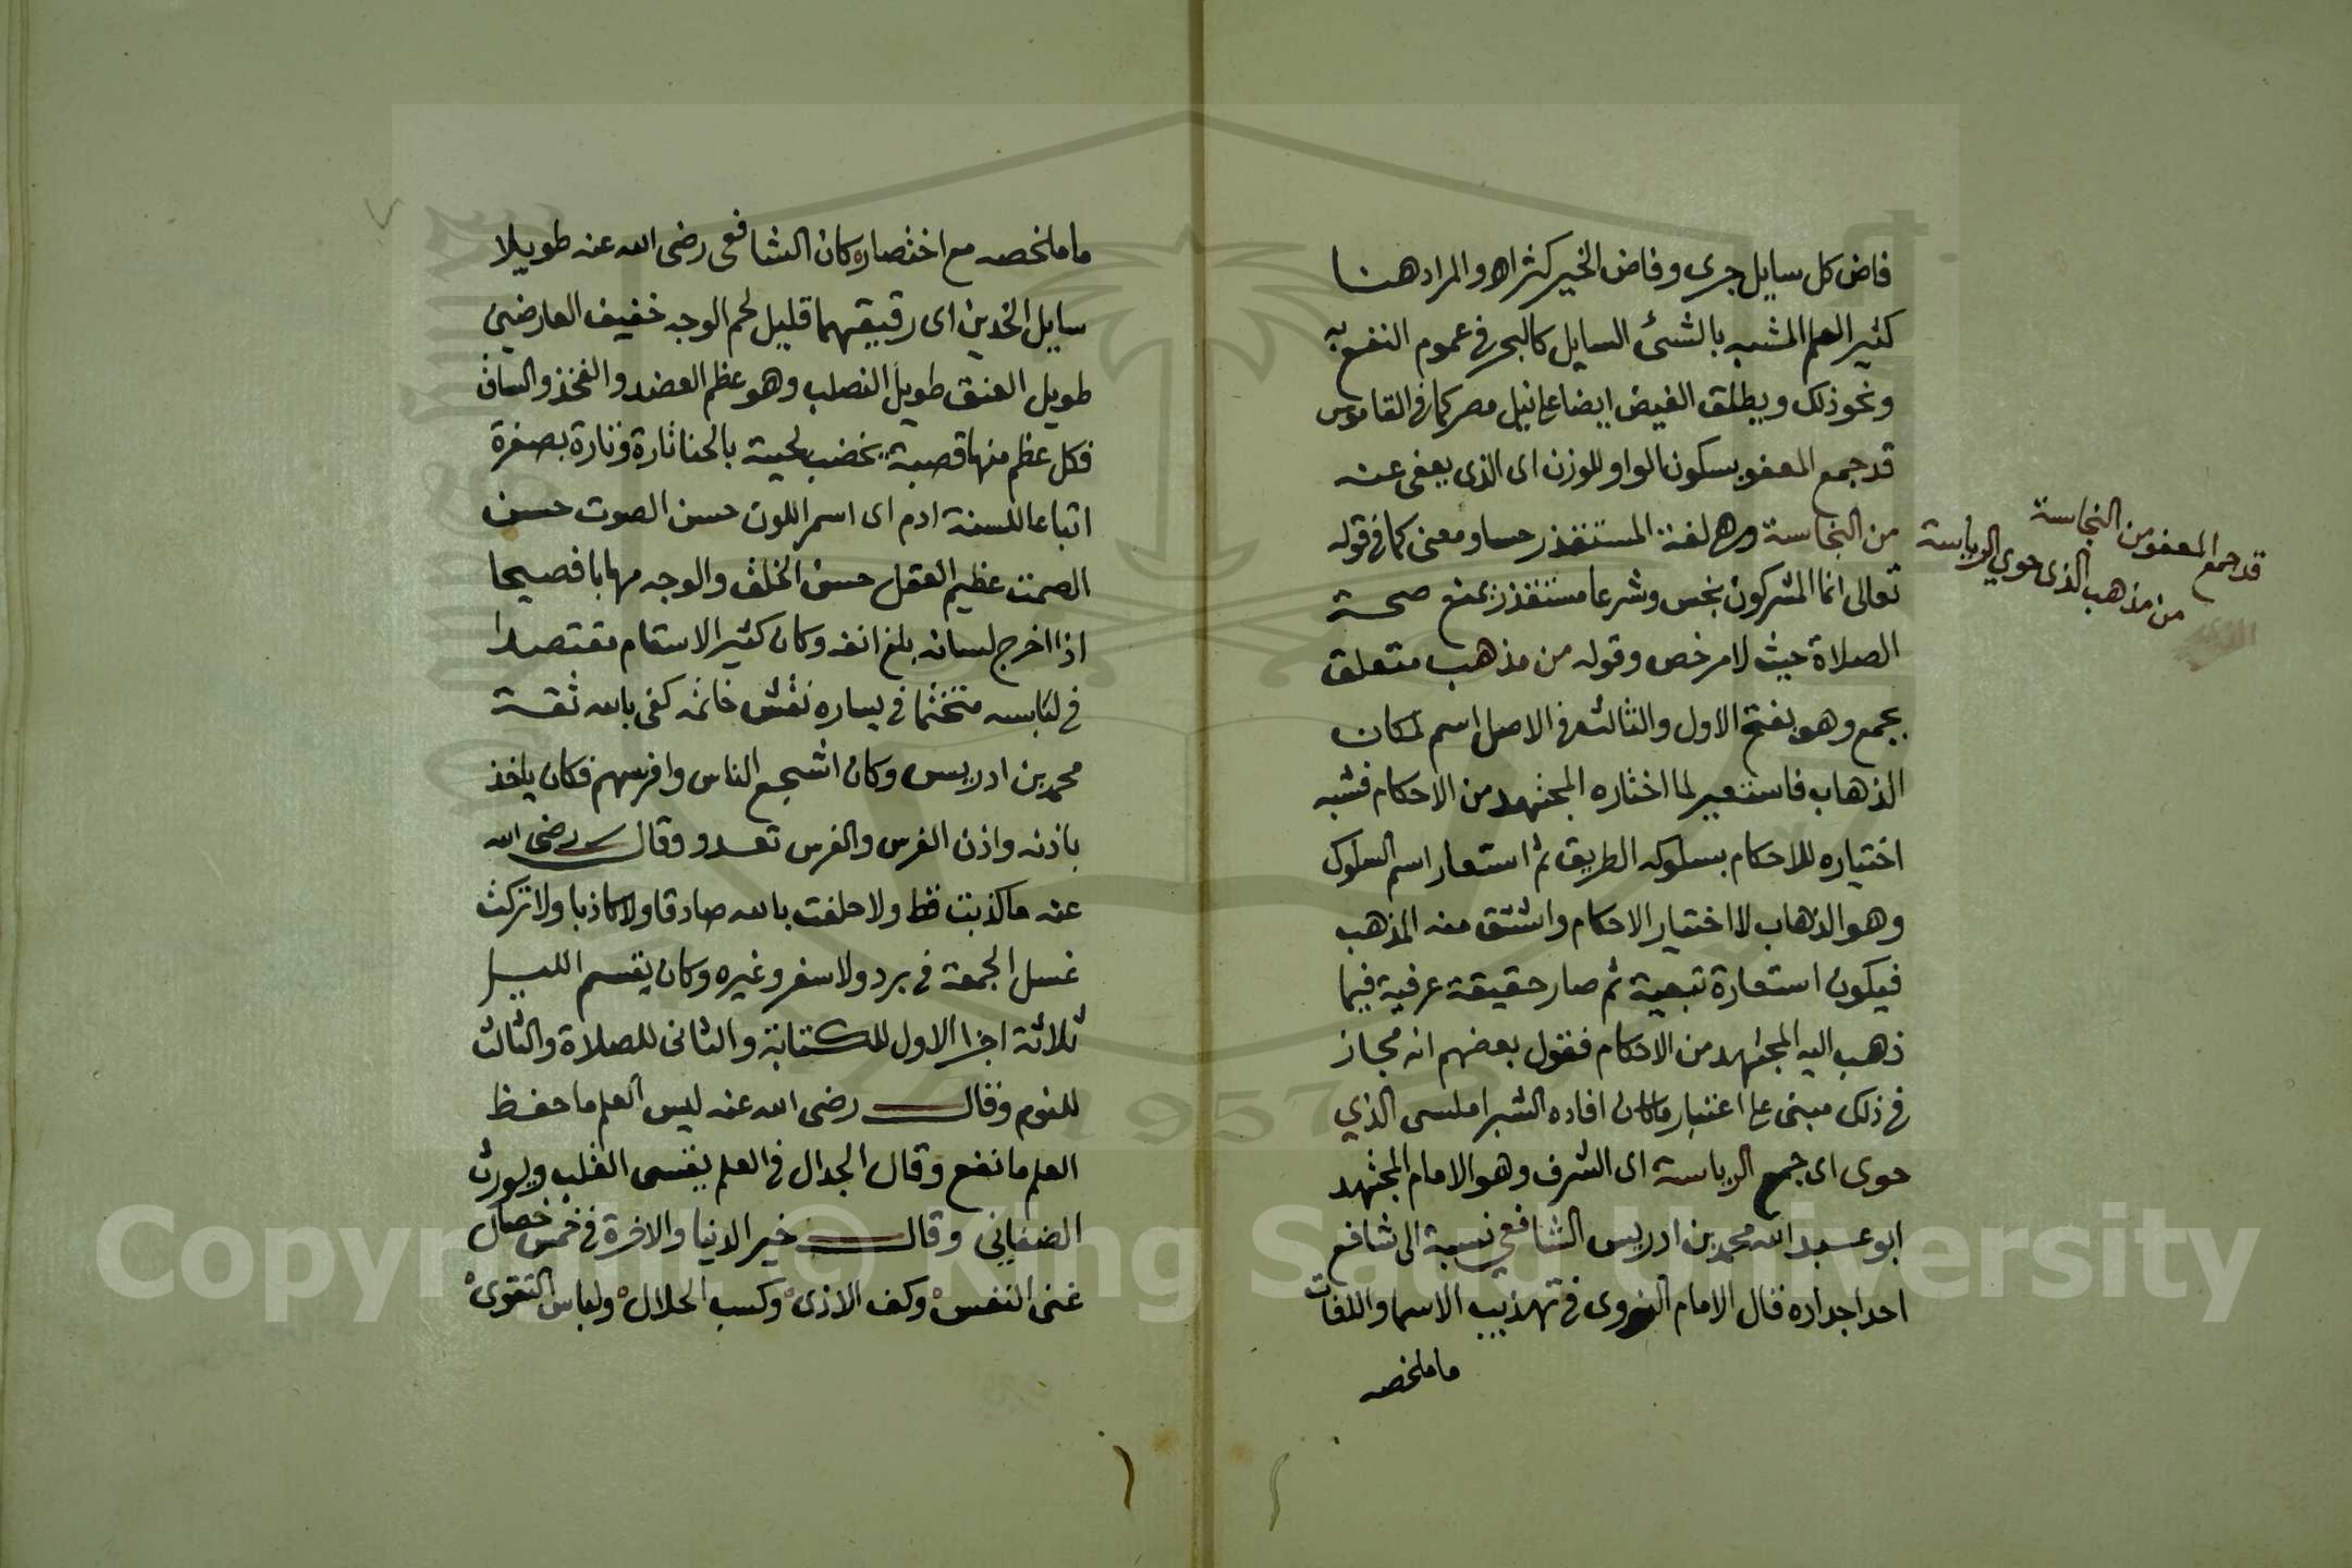 فاض كل سايل جرى وفاض الخير كثر اه والمراد هنا
كثير العلم المشبه بالشئ السايل كالبحر فى عموم النفع به
ونحو ذلك ويطلق الفيض ايضا على نيل مصر كما فى القاموس
قد جمع المعفو بسكون الواو للوزن اى الذى يعفى عنه
من النجاسة وهى لغة المستقذر حسا ومعنى كما فى قوله
تعالى انما المشركون نجس وشرعا مستقذر يمنع صحة
الصلاة حيث لا مرخص وقوله من مذهب متعلق
بجمع وهو بفتح الاول والثالث فى الاصل اسم لمكان
الذهاب فاستعير لما اختاره المجتهد من الاحكام فشبه
اختياره للاحكام بسلوكه الطريق ثم استعار اسم السلوك
وهو الذهاب لاختيار الاحكام واشتق منه المذهب
فيكون استعارة تبعية ثم صار حقيقة عرفية فيما
ذهب اليه المجتهد من الاحكام فقول بعضهم انه مجاز
فى ذلك مبنى على اعتبار ما كان افاده الشبراملسى الذي
حوى اى جمع الرياسة اى الشرف وهو الامام المجتهد
ابو عبد الله محمد بن ادريس الشافعي نسبة الى شافع
احد اجداده قال الامام النووى فى تهذيب الاسما واللغات
ما ملخصه
قد جمع المعفو من النجاسة
من مذهب الذى حوي الرياسة
ما ملخصه مع اختصاره كان الشافعى رضى الله عنه طويلا
سايل الخدين اى رقيقهما قليل لحم الوجه خفيف العارضين
طويل العنق طويل القصب وهو عظم العضد والفخذ والساق
فكل عظم منها قصبة يخضب لحيته بالحنا تارة وتارة بصفرة
اتباعا للسنة ادم اى اسمر اللون حسن الصوت حسن
الصمت عظيم العقل حسن الخلق والوجه مهابا فصيحا
اذا اخرج لسانه بلغ انفه وكان كثير الاسقام مقتصدا
فى لباسه متختما فى يساره نقش خاتمه كفى بالله ثقة
محمد بن ادريس وكان اشجع الناس وافرسهم فكان ياخذ
باذنه واذن الفرس والفرس تعدو وقال رضى الله
عنه ما كذبت قط ولا حلفت بالله صادقا ولا كاذبا ولا تركت
غسل الجمعة فى برد ولا سفر وغيره وكان يقسم الليل
ثلاثة اجزا الاول للكتابة والثانى للصلاة والثالث
للنوم وقال رضى الله عنه ليس العلم ما حفظ
العلم ما نفع وقال الجدال فى العلم يقسى القلب ويورث
الضغاين وقال خير الدنيا والاخرة فى خمس خصال
غنى النفس وكف الاذى وكسب الحلال ولباس التقوى
Copyright © King Saud University
1957